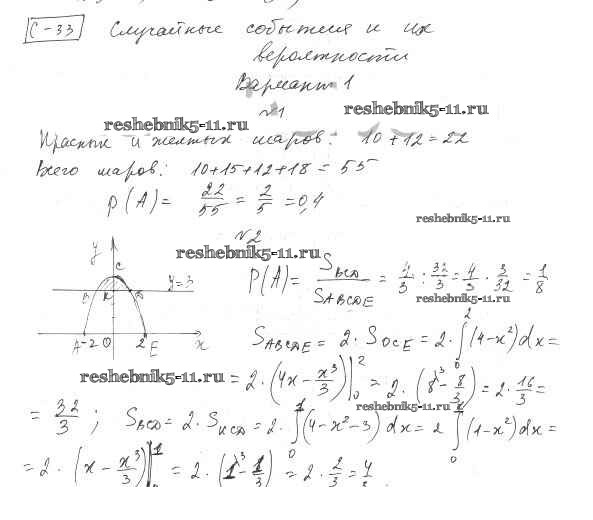 С-33 Случайные события и их
вероятности
Вариант 1
№1
reshebnik5-11.ru
reshebnik5-11.ru
Красных и желтых шаров: 10+12=22
Всего шаров: 10+15+12+18=55
P(A) = 22/55 = 2/5 = 0,4
reshebnik5-11.ru
№2
reshebnik5-11.ru
y
C
y=3
B
K
D
A -2 0 2 E x
P(A) = S_BCD / S_ABCDE = 4/3 : 32/3 = 4/3 · 3/32 = 1/8
reshebnik5-11.ru
S_ABCDE = 2·S_OCE = 2·∫₀²(4-x²)dx =
reshebnik5-11.ru
= 2·(4x - x³/3)|₀² = 2·(8 - 8/3) = 2·16/3 =
reshebnik5-11.ru
= 32/3; S_BCD = 2·S_KCD = 2·∫₀¹(4-x²-3)dx = 2∫₀¹(1-x²)dx =
= 2·(x - x³/3)|₀¹ = 2·(1 - 1/3) = 2·2/3 = 4/3